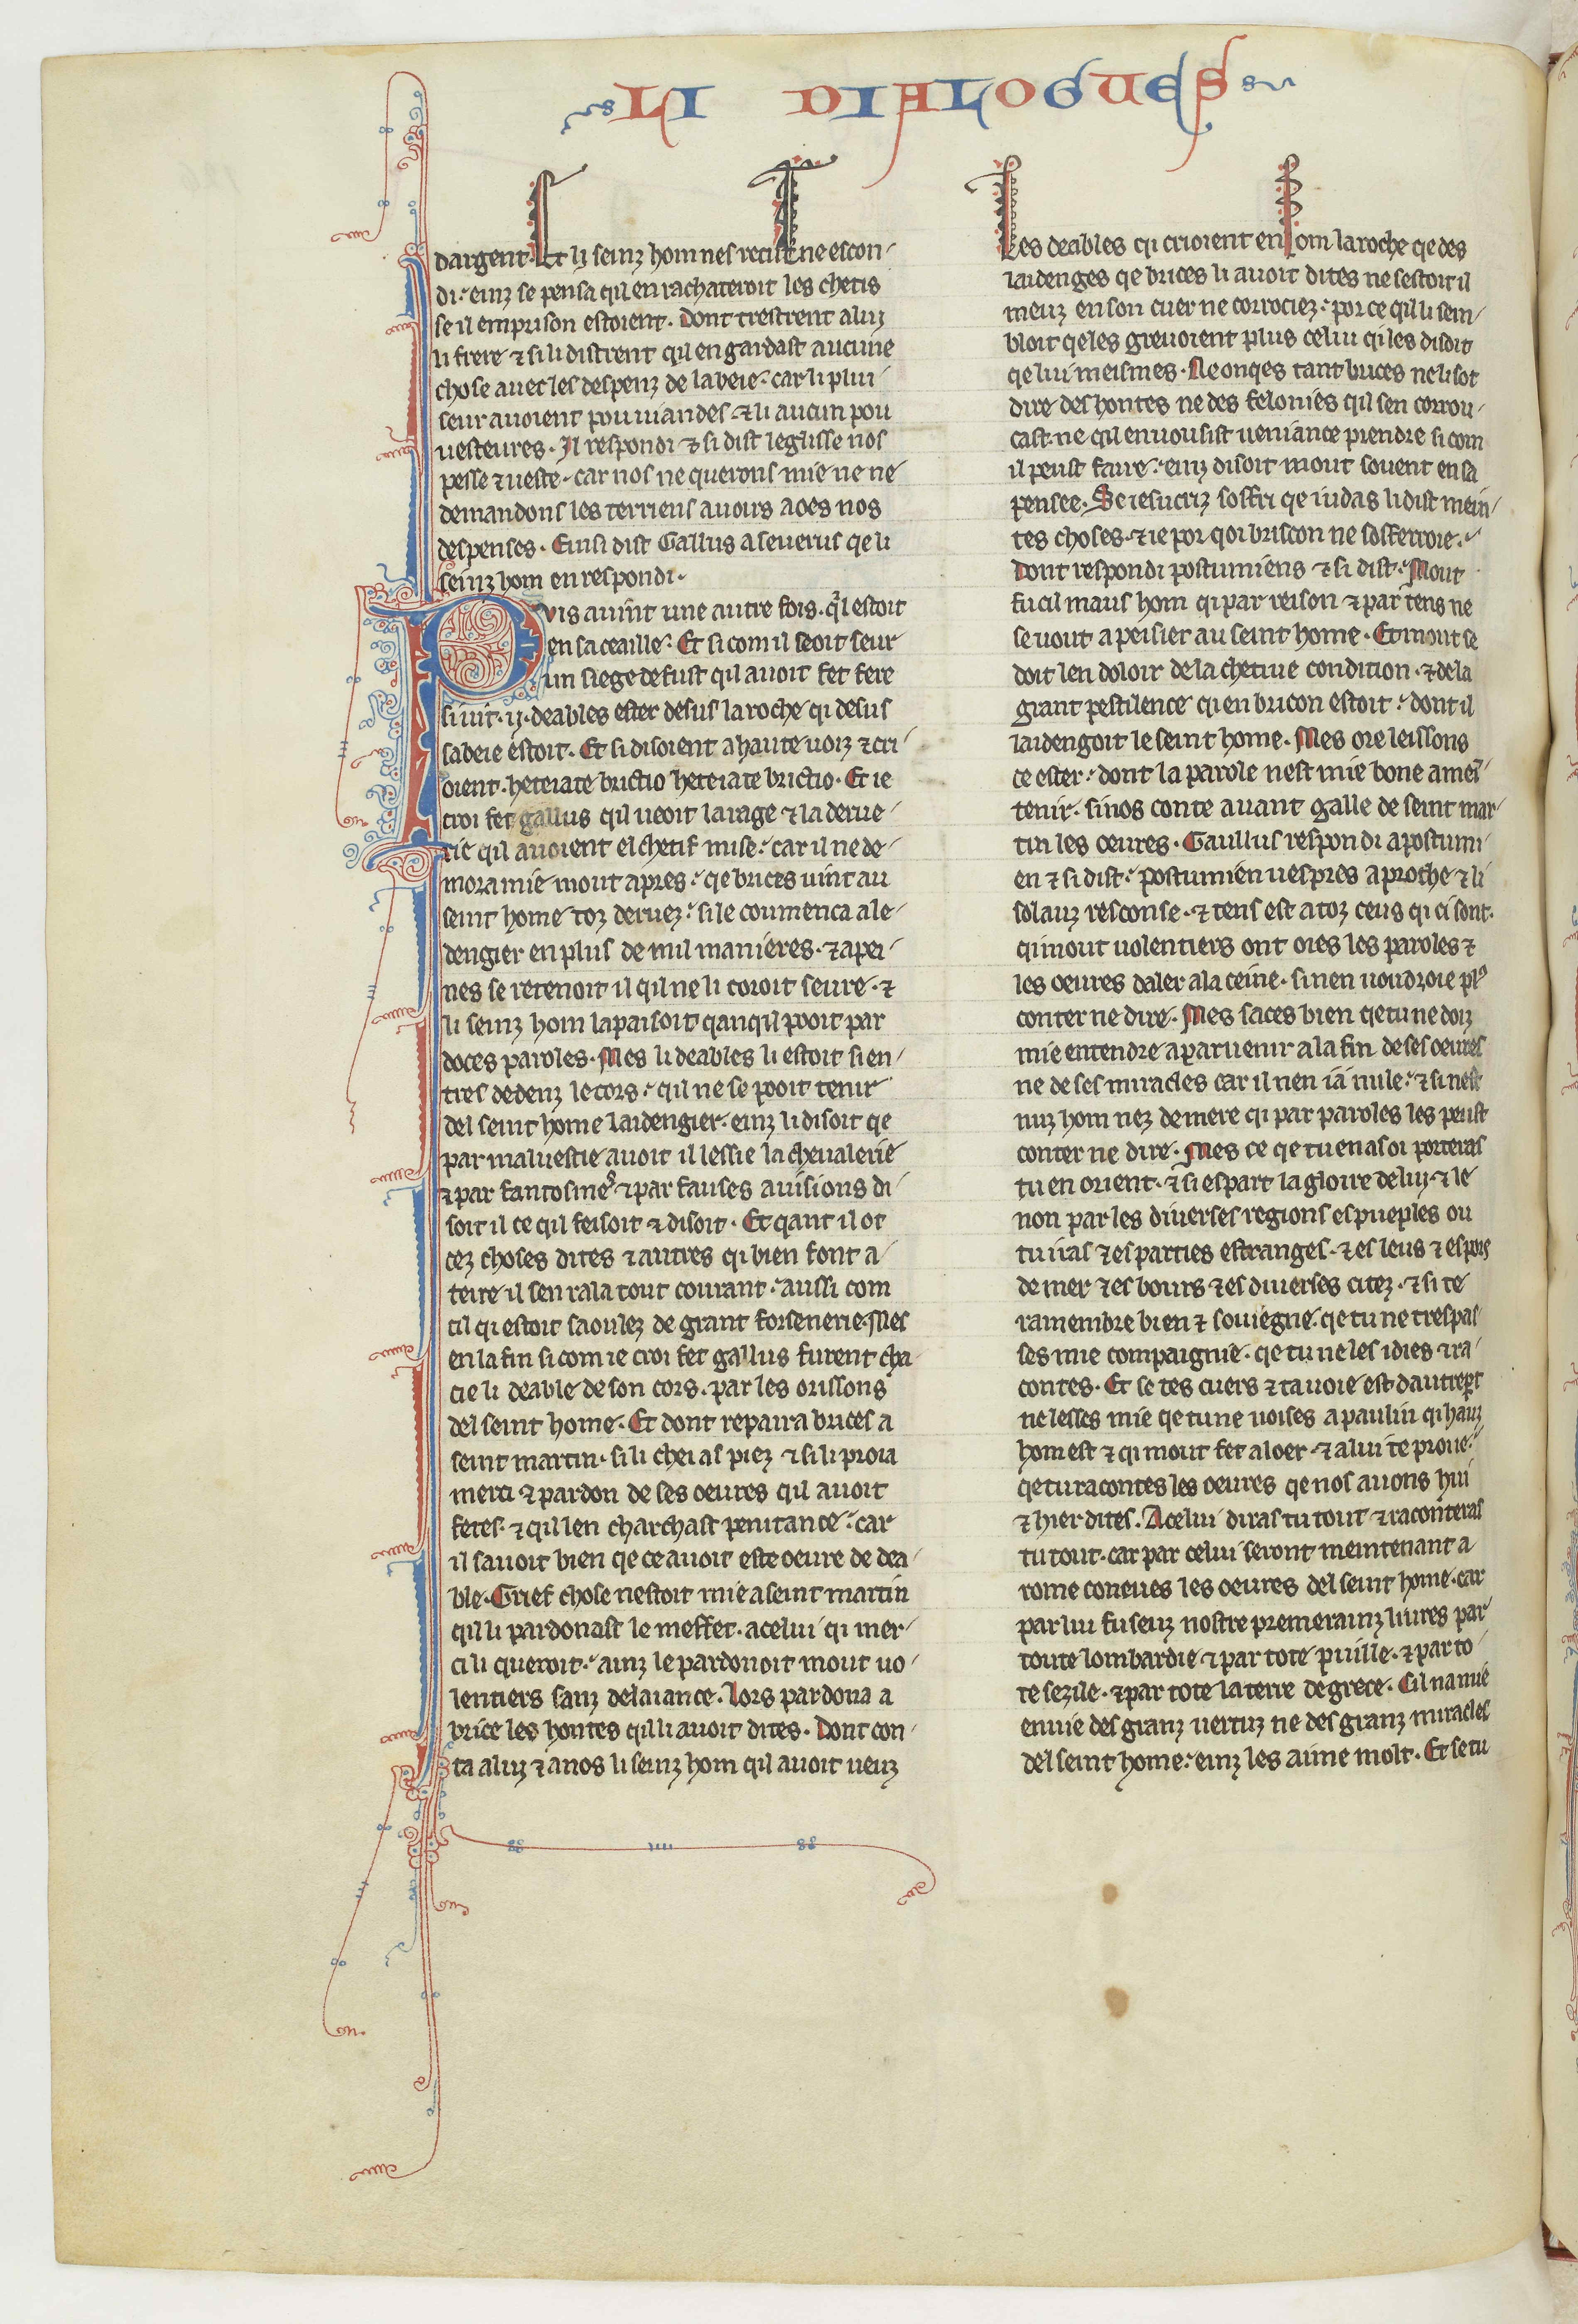 LI DIALOGUES
dargent. Et li seinz hom nes recut ne escon-
di. einz se pensa qil en rachateroit les chetis
se il emprison estoient. Dont trestrent a luy
li frere ⁊ si li distrent qil en gardast aucune
chose avec les despenz de labeie. car li plui
seur avoient pou uiandes ⁊ li aucun pou
uesteures. Il respondi ⁊ si dist leglisse nos
pesse ⁊ ueste. car nos ne querons mie ne ne
demandons les terriens auoirs a oes nos
despenses. Einsi dist Gallus a seuerus qe li
seinz hom en respondi.
Puis auint une autre fois. qil estoit
en sa ceaille. Et si com il seoit seur
un siege de fust qil auoit fet fere
si uit .ij. deables ester desus la roche qi desus
sabeie estoit. Et si disoient a haute uoiz ⁊ cri-
oient. heteiate brictio heteiate brictio. Et ie
croi fet gallus qil ueoit la rage ⁊ la derue-
rie qil auoient el chetif mise. car il ne de-
mora mie mout apres. qe brices uint au
seint home toz deruez. si le coumenca a le-
dengier en plus de mil manieres. ⁊ a pei-
nes se retenoit il qil ne li coroit seure. ⁊
li seinz hom lapaisoit qanqil pooit par
doces paroles. Mes li deables li estoit si en-
tres dedenz le cors. qil ne se pooit tenir
del seint home laidengier. einz li disoit qe
par maluestie auoit il lessie la cheualerie
⁊ par fantosme. ⁊ par fauses auisions di-
soit il ce qil feisoit ⁊ disoit. Et qant il ot
cez choses dites ⁊ autres qi bien font a
teire il sen rala tout courant. aussi com
cil qi estoit saoulez de grant forsenerie. Mes
en la fin si com ie croi fet gallus furent cha-
cie li deable de son cors. par les orissons
del seint home. Et dont repaira brices a
seint martin. si li chei as piez ⁊ si li proia
merci ⁊ pardon de ses oeures qil auoit
fetes. ⁊ qil len charchast penitance. car
il sauoit bien qe ce auoit este oeure de dea-
ble. Grief chose nestoit mie a seint martin
qil li pardonast le meffet. a celui qi mer-
ci li queroit. ainz le pardonoit mout uo-
lentiers sanz delaiance. Lors pardona a
brice les hontes qil li auoit dites. Dont con-
ta a luy ⁊ a nos li seinz hom qil auoit ueuz
Les deables qi crioient en som la roche qe des
laidenges qe brices li auoit dites ne sestoit il
meuz en son cuer ne corrociez. por ce qil li sem-
bloit qe les greuoient plus celui qi les disoit
qe lui meismes. Ne onqes tant brices ne li sot
dire des hontes ne des felonies qil sen corrou-
cast. ne qil en uousist ueniance prendre si com
il peust faire. einz disoit mout souent en sa
pensee. Se iesucriz soffri qe iudas li dist mein-
tes choses. ⁊ ie por qoi briscon ne sosferroie.
Dont respondi postumiens ⁊ si dist. Mout
fu cil maus hom qi par reison ⁊ par tens ne
se uout apeisier au seint home. Et mout se
doit len doloir de la chetiue condition. ⁊ de la
grant pestilence qi en bricon estoit. dont il
laidengoit le seint home. Mes ore leissons
ce ester. dont la parole nest mie bone a mei-
tenir. si nos conte auant galle de seint mar-
tin les oeures. Gaullus respondi a postumi-
en ⁊ si dist. postumien uespres aproche ⁊ li
solauz resconse. ⁊ tens est a toz ceus qi ci sont.
qi mout uolentiers ont oies les paroles ⁊
les oeures daler a la ceine. si nen uoudroie pl9
conter ne dire. Mes saces bien qe tu ne doiz
mie entendre a paruenir a la fin de ses oeures
ne de ses miracles car il nen ia nule. ⁊ si nest
nuz hom nez de mere qi par paroles les peust
conter ne dire. Mes ce qe tu en as oi porteras
tu en orient. ⁊ si espart la gloire de luy. ⁊ le
non par les diuerses regions es pueples ou
tu iras ⁊ es parties estranges. ⁊ es leus ⁊ es pors
de mer ⁊ es bours ⁊ es diuerses citez. ⁊ si te
ramembre bien ⁊ souiegne. qe tu ne trespas-
ses mie compaignie. qe tu ne les i dies ⁊ ra-
contes. Et se tes cuers ⁊ ta uoie est dautrept
ne lesses mie qe tu ne uoises a paulin qi hauz
hom est ⁊ qi mout fet a loer. ⁊ a lui te proue.
qe tu racontes les oeures qe nos auons hui
⁊ hier dites. A celui diras tu tout ⁊ raconteras
tu tout. car par celui seront meintenant a
rome coneues les oeures del seint home. car
par lui fu seuz nostre premerainz liures par
toute lombardie ⁊ par tote puille. ⁊ par to-
te sezile. ⁊ par tote la terre de grece. Cil na mie
enuie des granz uertuz ne des granz miracles
del seint home. einz les aime molt. Et se tu